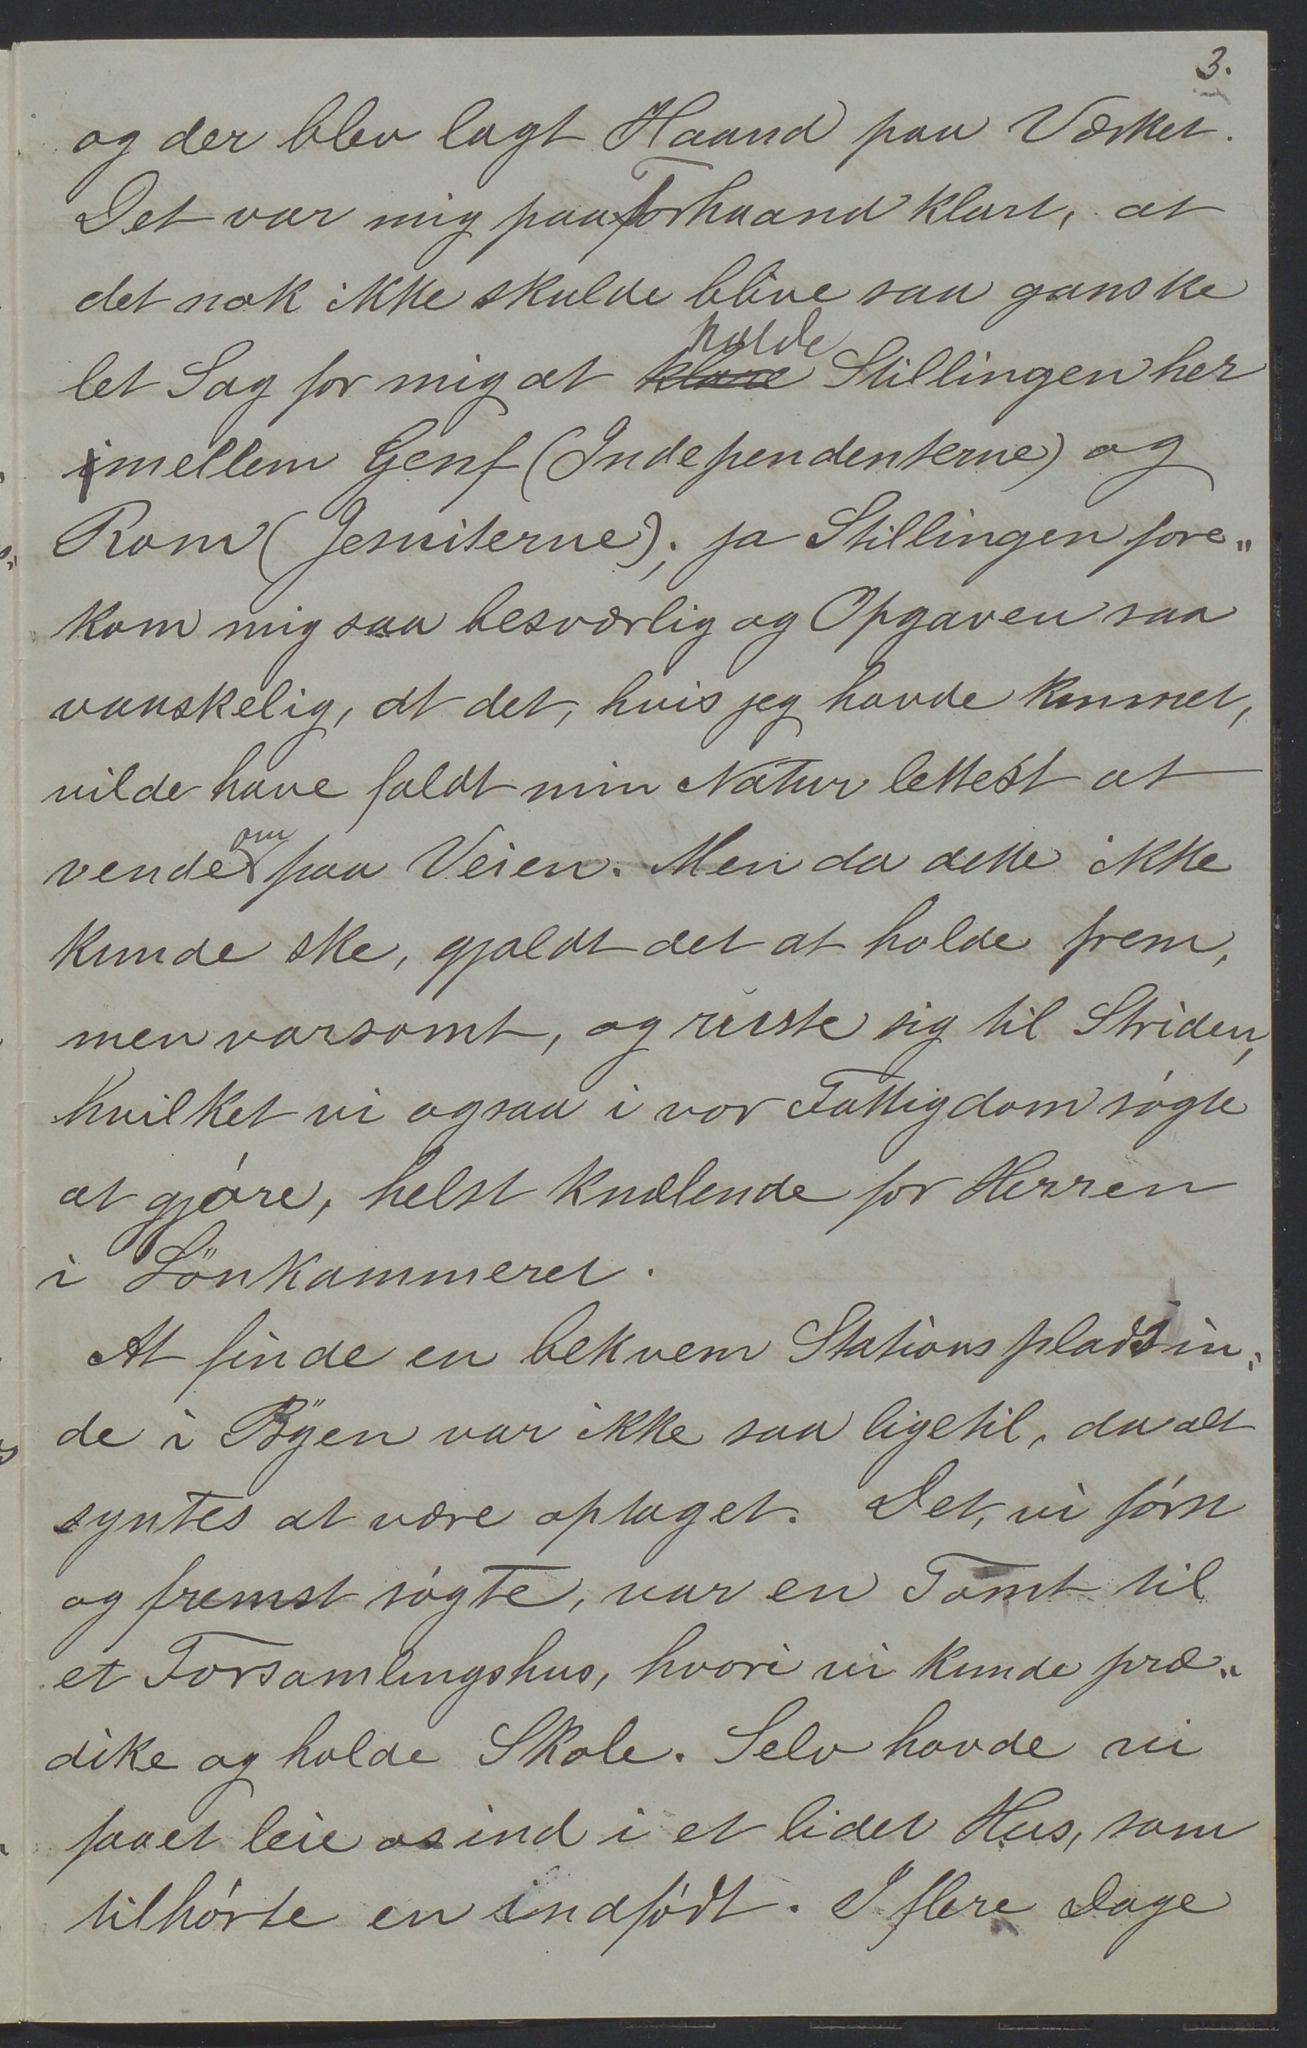 3.
og der blev lagt Haand paa Værket.
Det var mig paa Forhaand klart, at
det nok ikke skulde blive saa ganske
holde
let Sag for mig at klare Stillingen her
imellem Genf (Independenterne) og
Rom (Jesuiterne); ja Stillingen fore„
kom mig saa besværlig og Opgaven saa
vanskelig, at det, hvis jeg havde kunnet,
vilde have faldt min Natur lettest at
om
vende paa Veien. Men da dette ikke
kunde ske, gjaldt det at holde frem,
men varsomt, og ruste sig til Striden,
hvilket vi ogsaa i vor Fattigdom søgte
at gjøre, helst knælende for Herren
i Lönkammeret.
At finde en bekvem Stationsplads in„
de i Byen var ikke saa ligetil, da alt
syntes at være optaget. Det, vi først
og fremst søgte, var en Tomt til
et Forsamlingshus, hvori vi kunde præ„
dike og holde Skole. Selv havde vi
faaet leie os ind i et lidet Hus, som
tilhørte en indfødt. I flere Dage